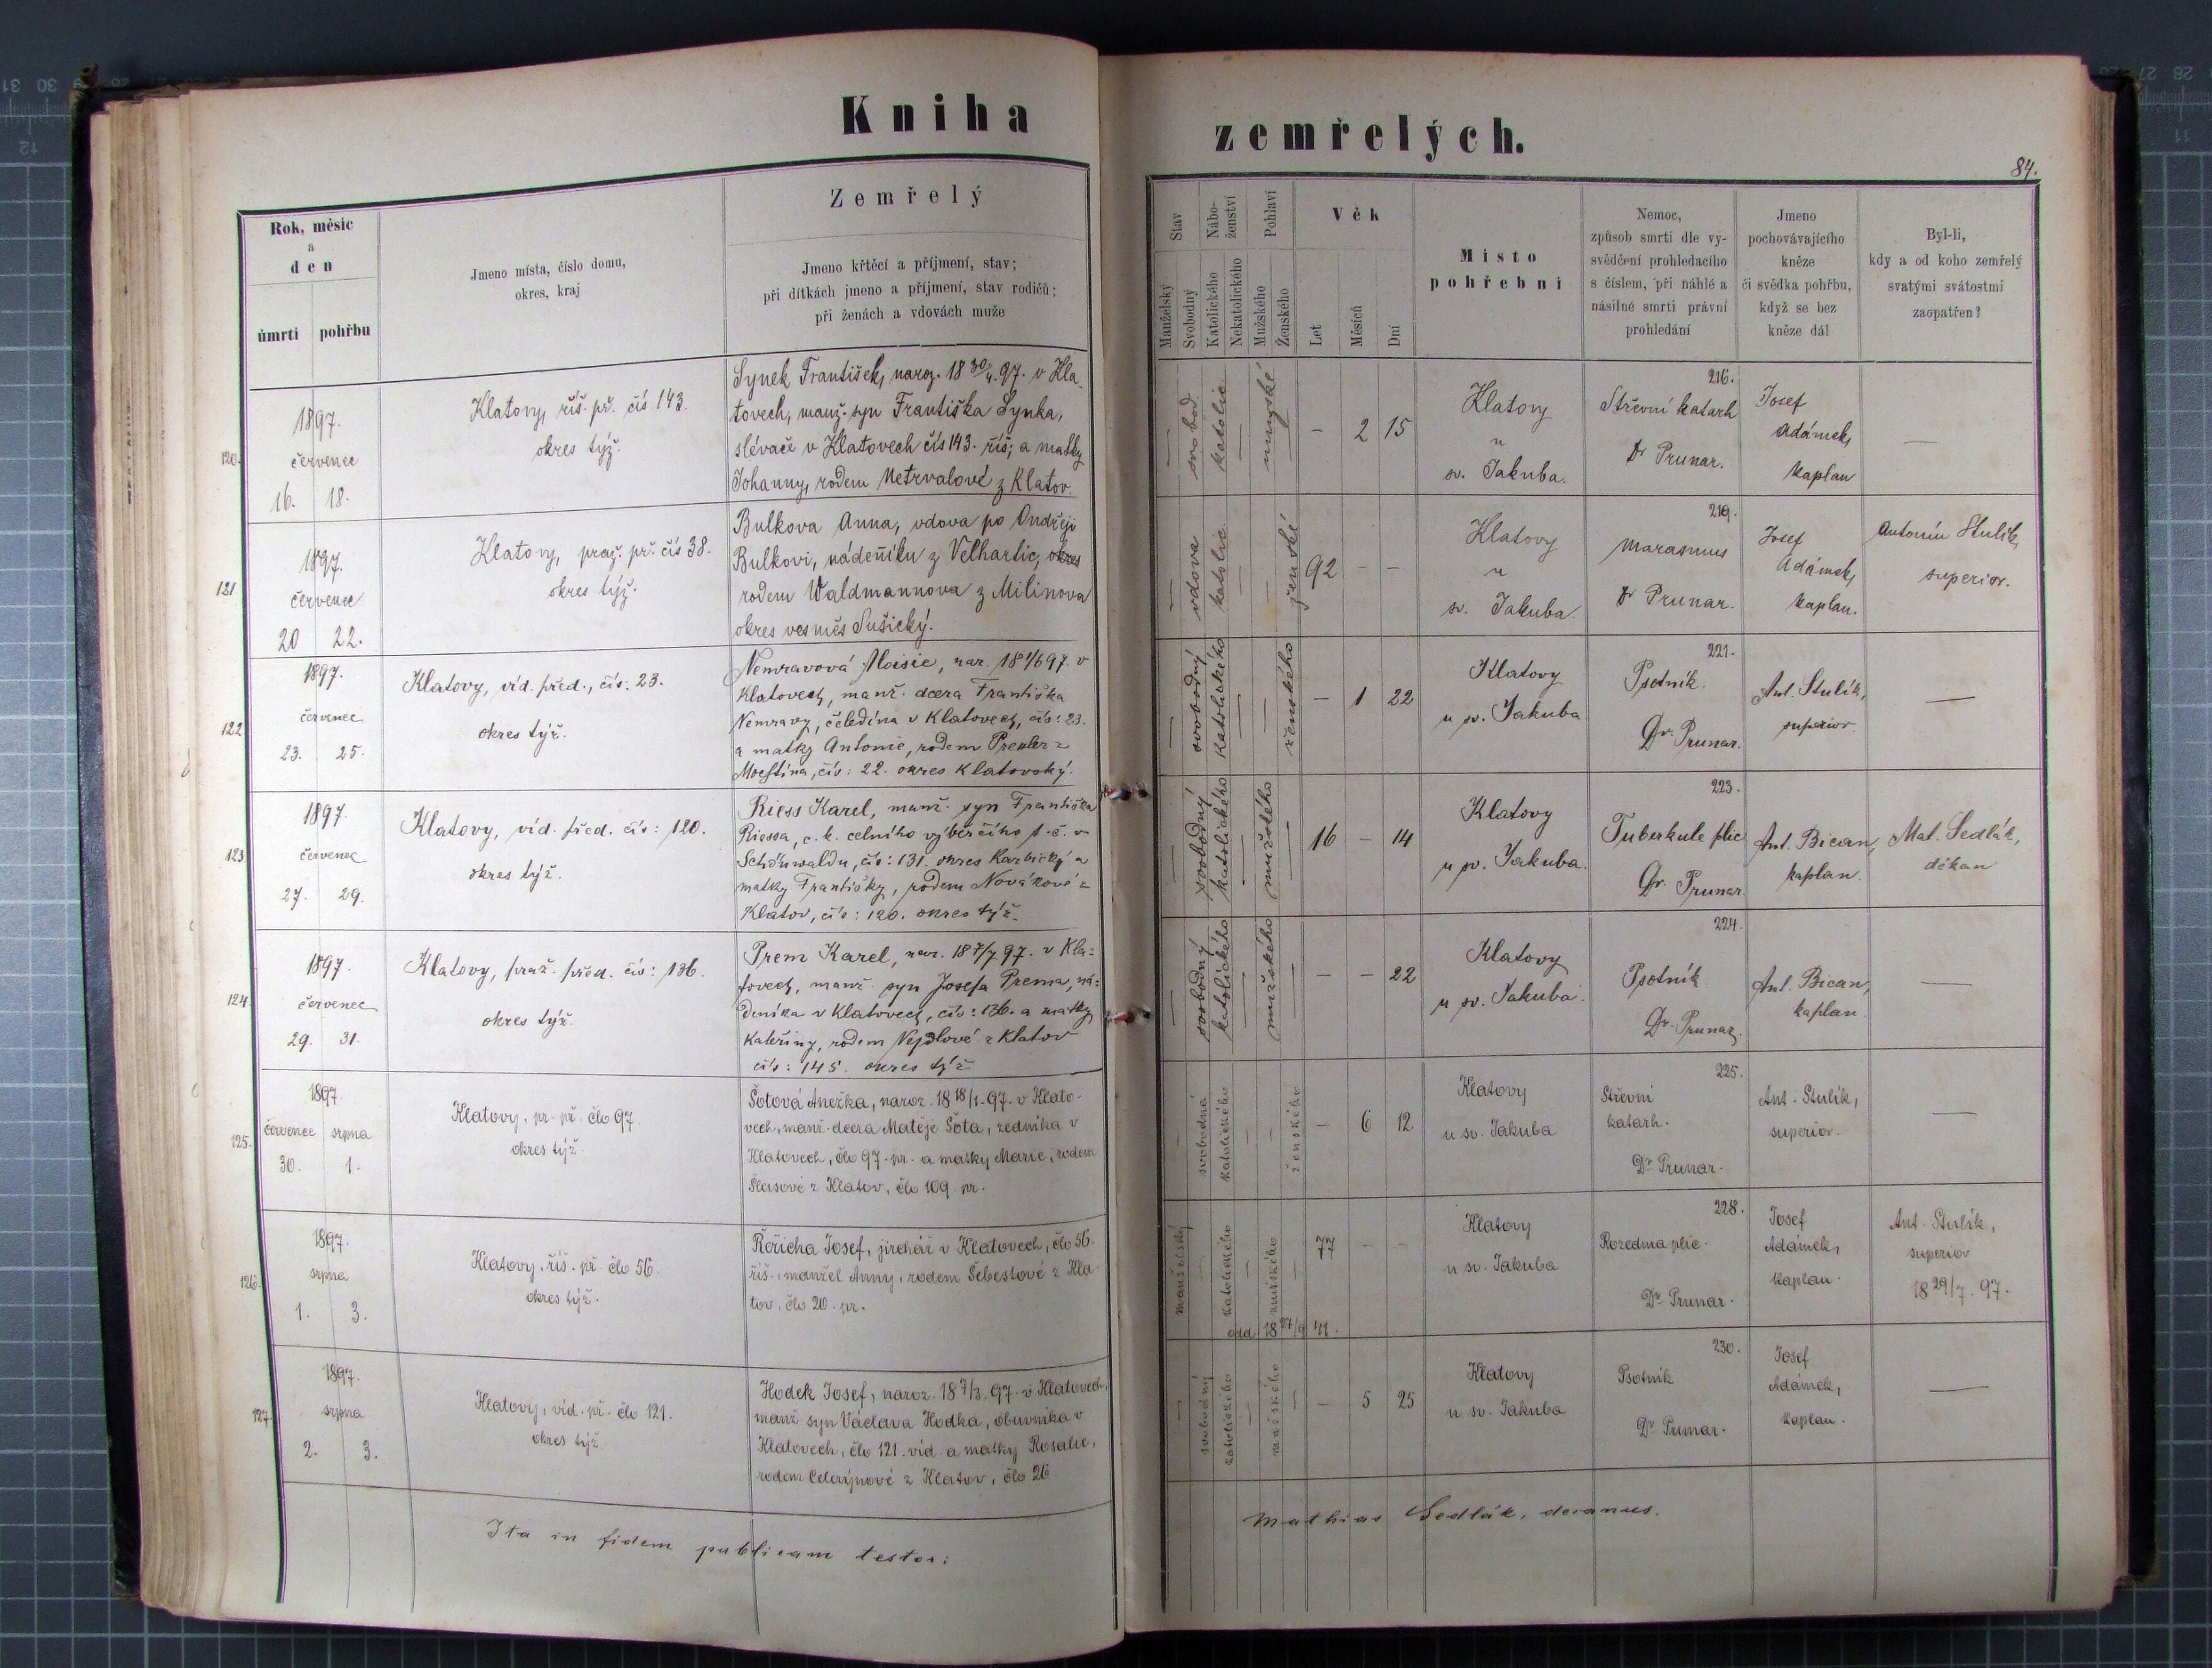 Kniha
zemřelých.
84.
Rok, měsíc
a
den
úmrtí
pohřbu
Jmeno místa, číslo domu,
okres, kraj
Zemřelý
Jmeno křtěcí a příjmení, stav;
při dítkách jmeno a příjmení, stav rodičů;
při ženách a vdovách muže
Stav
Manželský
Svobodný
Nábo-
ženství
Katolického
Nekatolického
Pohlaví
Mužského
Ženského
Věk
Let
Měsíců
Dní
Místo
pohřební
Nemoc,
způsob smrti dle vy-
svědčení prohledacího
s číslem, při náhlé a
násilné smrti právní
prohledání
Jmeno
pochovávajícího
kněze
či svědka pohřbu,
když se bez
kněze dál
Byl-li,
kdy a od koho zemřelý
svatými svátostmi
zaopatřen?
120.
1897.
červenec
16. 18.
Klatovy, říš. př. čís 143.
okres týž.
Synek František, naroz. 18 30/4. 97. v Kla-
tovech, manž. syn Františka Synka,
slévače v Klatovech čís 143. říš; a matky
Johanny, rodem Netrvalové z Klatov.
svobod.
katolic.
mužské
- 2 15
Klatovy
u
sv. Jakuba.
216.
Střevní katarh
Dr Prunar.
Josef
Adámek,
kaplan
—
121
1897.
červenec
20 22.
Klatovy, praž. př. čís 38.
okres týž.
Bulkova Anna, vdova po Ondřeji
Bulkovi, nádeníku z Velhartic, okres
rodem Waldmannova z Milinova
okres vesměs Sušický.
vdova
katolic.
ženské
92 - -
Klatovy
u
sv. Jakuba.
219.
Marasmus
Dr Prunar.
Josef
Adámek,
kaplan.
Antonín Stulík,
superior.
122
1897.
červenec
23. 25.
Klatovy, víd. před., čís: 23.
okres týž.
Nemravová Aloisie, nar. 18 1/6 97. v
Klatovech, manž. dcera Františka
Nemravy, čeledína v Klatovech, čís: 23.
a matky Antonie, rodem z
Močtína, čís: 22. okres Klatovský.
svobodný
katolického
ženského
- 1 22
Klatovy
u sv. Jakuba
221.
Psotník.
Dr. Prunar.
Ant. Stulík,
superior.
—
123
1897.
červenec
27. 29.
Klatovy, víd. před. čís: 120.
okres týž.
Riess Karel, manž. syn Františka
Riessa, c. k. celního výběrčího v
Schönwaldu, čís: 131. okres Karbický a
matky Františky, rodem Novákové z
Klatov, čís: 120. okres týž.
svobodný
katolického
mužského
16 - 14
Klatovy
u sv. Jakuba.
223.
Tuberkule plic
Dr. Prunar
Ant. Bican,
kaplan.
Mat. Sedlák,
děkan
124
1897.
červenec
29. 31.
Klatovy, praž. před. čís: 136.
okres týž.
Prem Karel, nar. 18 7/7 97. v Kla=
tovech, manž. syn Josefa Prema, ná=
deníka v Klatovech, čís: 136. a matky
Kateřiny, rodem Nejdlové z Klatov
čís: 145. okres týž.
svobodný
katolického
mužského
- - 22
Klatovy
u sv. Jakuba.
224.
Psotník
Dr. Prunar.
Ant. Bican,
kaplan.
—
125.
1897.
července srpna
30. 1.
Klatovy, pr. př. člo 97
okres týž.
Šotová Anežka, naroz. 18 18/1. 97. v Klato-
vech, manž. dcera Matěje Šota, zedníka v
Klatovech, člo 97. pr. a matky Marie, rodem
z Klatov, člo 109 pr.
svobodná
katolického
ženského
- 6 12
Klatovy
u sv. Jakuba
225.
Střevní
katarh.
Dr Prunar.
Ant. Stulík,
superior.
—
126.
1897.
srpna
1. 3.
Klatovy, říš. př. člo 56.
okres týž.
Řeřicha Josef, jirchář v Klatovech, člo 56.
říš., manžel Anny, rodem Šebestové z Kla-
tov, člo 20. pr.
manželský
katolického
mužského
odd. 18 27/9 41.
77 - -
Klatovy
u sv. Jakuba
228.
Rozedma plic.
Dr Prunar.
Josef
Adámek,
kaplan.
Ant. Stulík,
superior
18 29/7. 97.
127.
1897.
srpna
2. 3.
Klatovy, víd. př. člo 121.
okres týž
Hodek Josef, naroz. 18 7/3. 97. v Klatovech,
manž. syn Václava Hodka, obuvníka v
Klatovech, člo 121. víd. a matky Rosalie,
rodem Celerýnové z Klatov, člo 26
svobodný
katolického
mužského
- 5 25
Klatovy
u sv. Jakuba
230.
Psotník
Dr Prunar.
Josef
Adámek,
kaplan.
—
Ita in fidem publicam testor:
Mathias Sedlák, decanus.